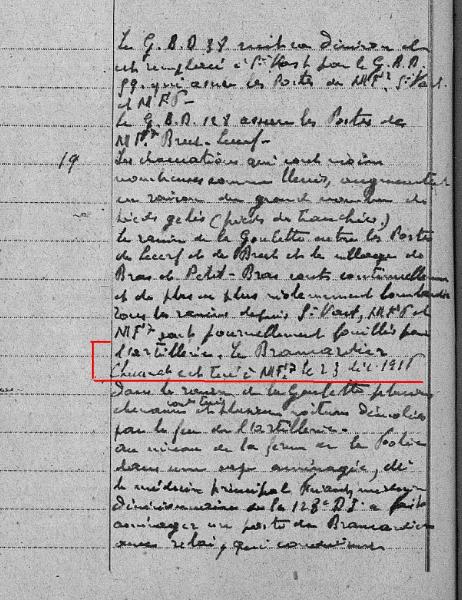 Le G.B.D 38 suit sa division et
est remplacé à St Vast par le G.B.D.
59. qui assure les Postes de MF2 St Vast.
et MFP-
Le G.B.D. 128 assure les Postes de
MF7 Breul-Leuf-
19 Les évacuations qui sont moins
nombreuses comme blessés, augmentent
en raison du grand nombre de
pieds gelés (pieds de tranchées,)
le ravin de la Goulette entre les Postes
de et de Breul et le village de
Bras et Petit-Bras sont continuellement
et de plus en plus violemment bombardés
tous les ravins depuis St Vast, MFP et
MF7 sont journellement fouillés par
l'artillerie. Le Brancardier
est tué à MF7 le 23 déc 1916
dans le ravin de la Goulette plusieurs
chevaux sont tués et plusieurs voitures démolies
par le feu de l'artillerie.
au niveau de la ferme de la Folie
dans une sape aménagée,
le médecin principal médecin
divisionnaire de la 128e D.I a fait
aménager un poste de Brancardiers
avec relai, qui